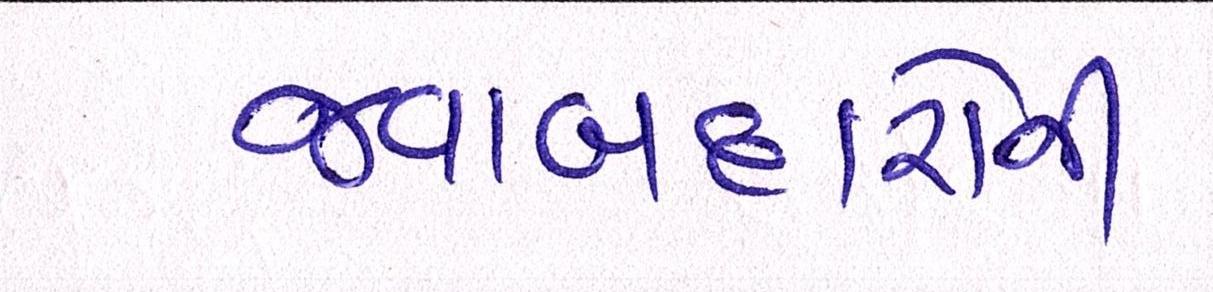 જવાબદારોની